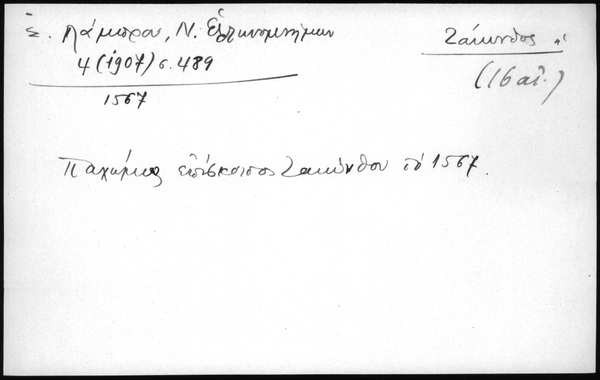 Σ. Λάμπρου, Ν. Ἑλληνομνήμων
Ζάκυνθος
4 (1907) σ. 489
(16 αἰ.)
1567
Παχώμιος ἐπίσκοπος Ζακύνθου τὸ 1567.